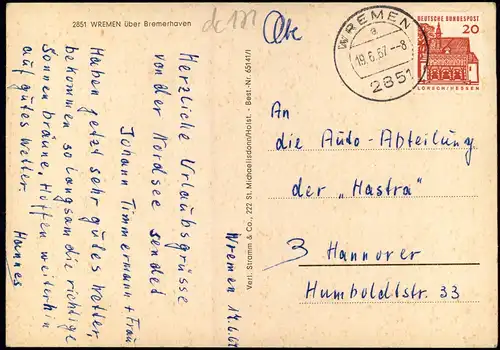 2851 WREMEN über Bremerhaven
dc 171
Abs
WREMEN
a
19.6.67.-8
2851
DEUTSCHE BUNDESPOST
20
LORSCH/HESSEN
Herzliche Urlaubsgrüsse
von der Nordsee sendet
Johann Timmermann + Frau
Haben jetzt sehr gutes Wetter
bekommen so langsam die richtige
Sonnenbräune, Hoffen weiterhin
auf gutes Wetter.
Hannes
Wremen 17.6.67
Verl. Stramm & Co., 222 St. Michaelisdonn/Holst. - Best.-Nr. 65141/1
An
die Auto-Abteilung
der „Hastra"
3 Hannover
Humboldtstr. 33